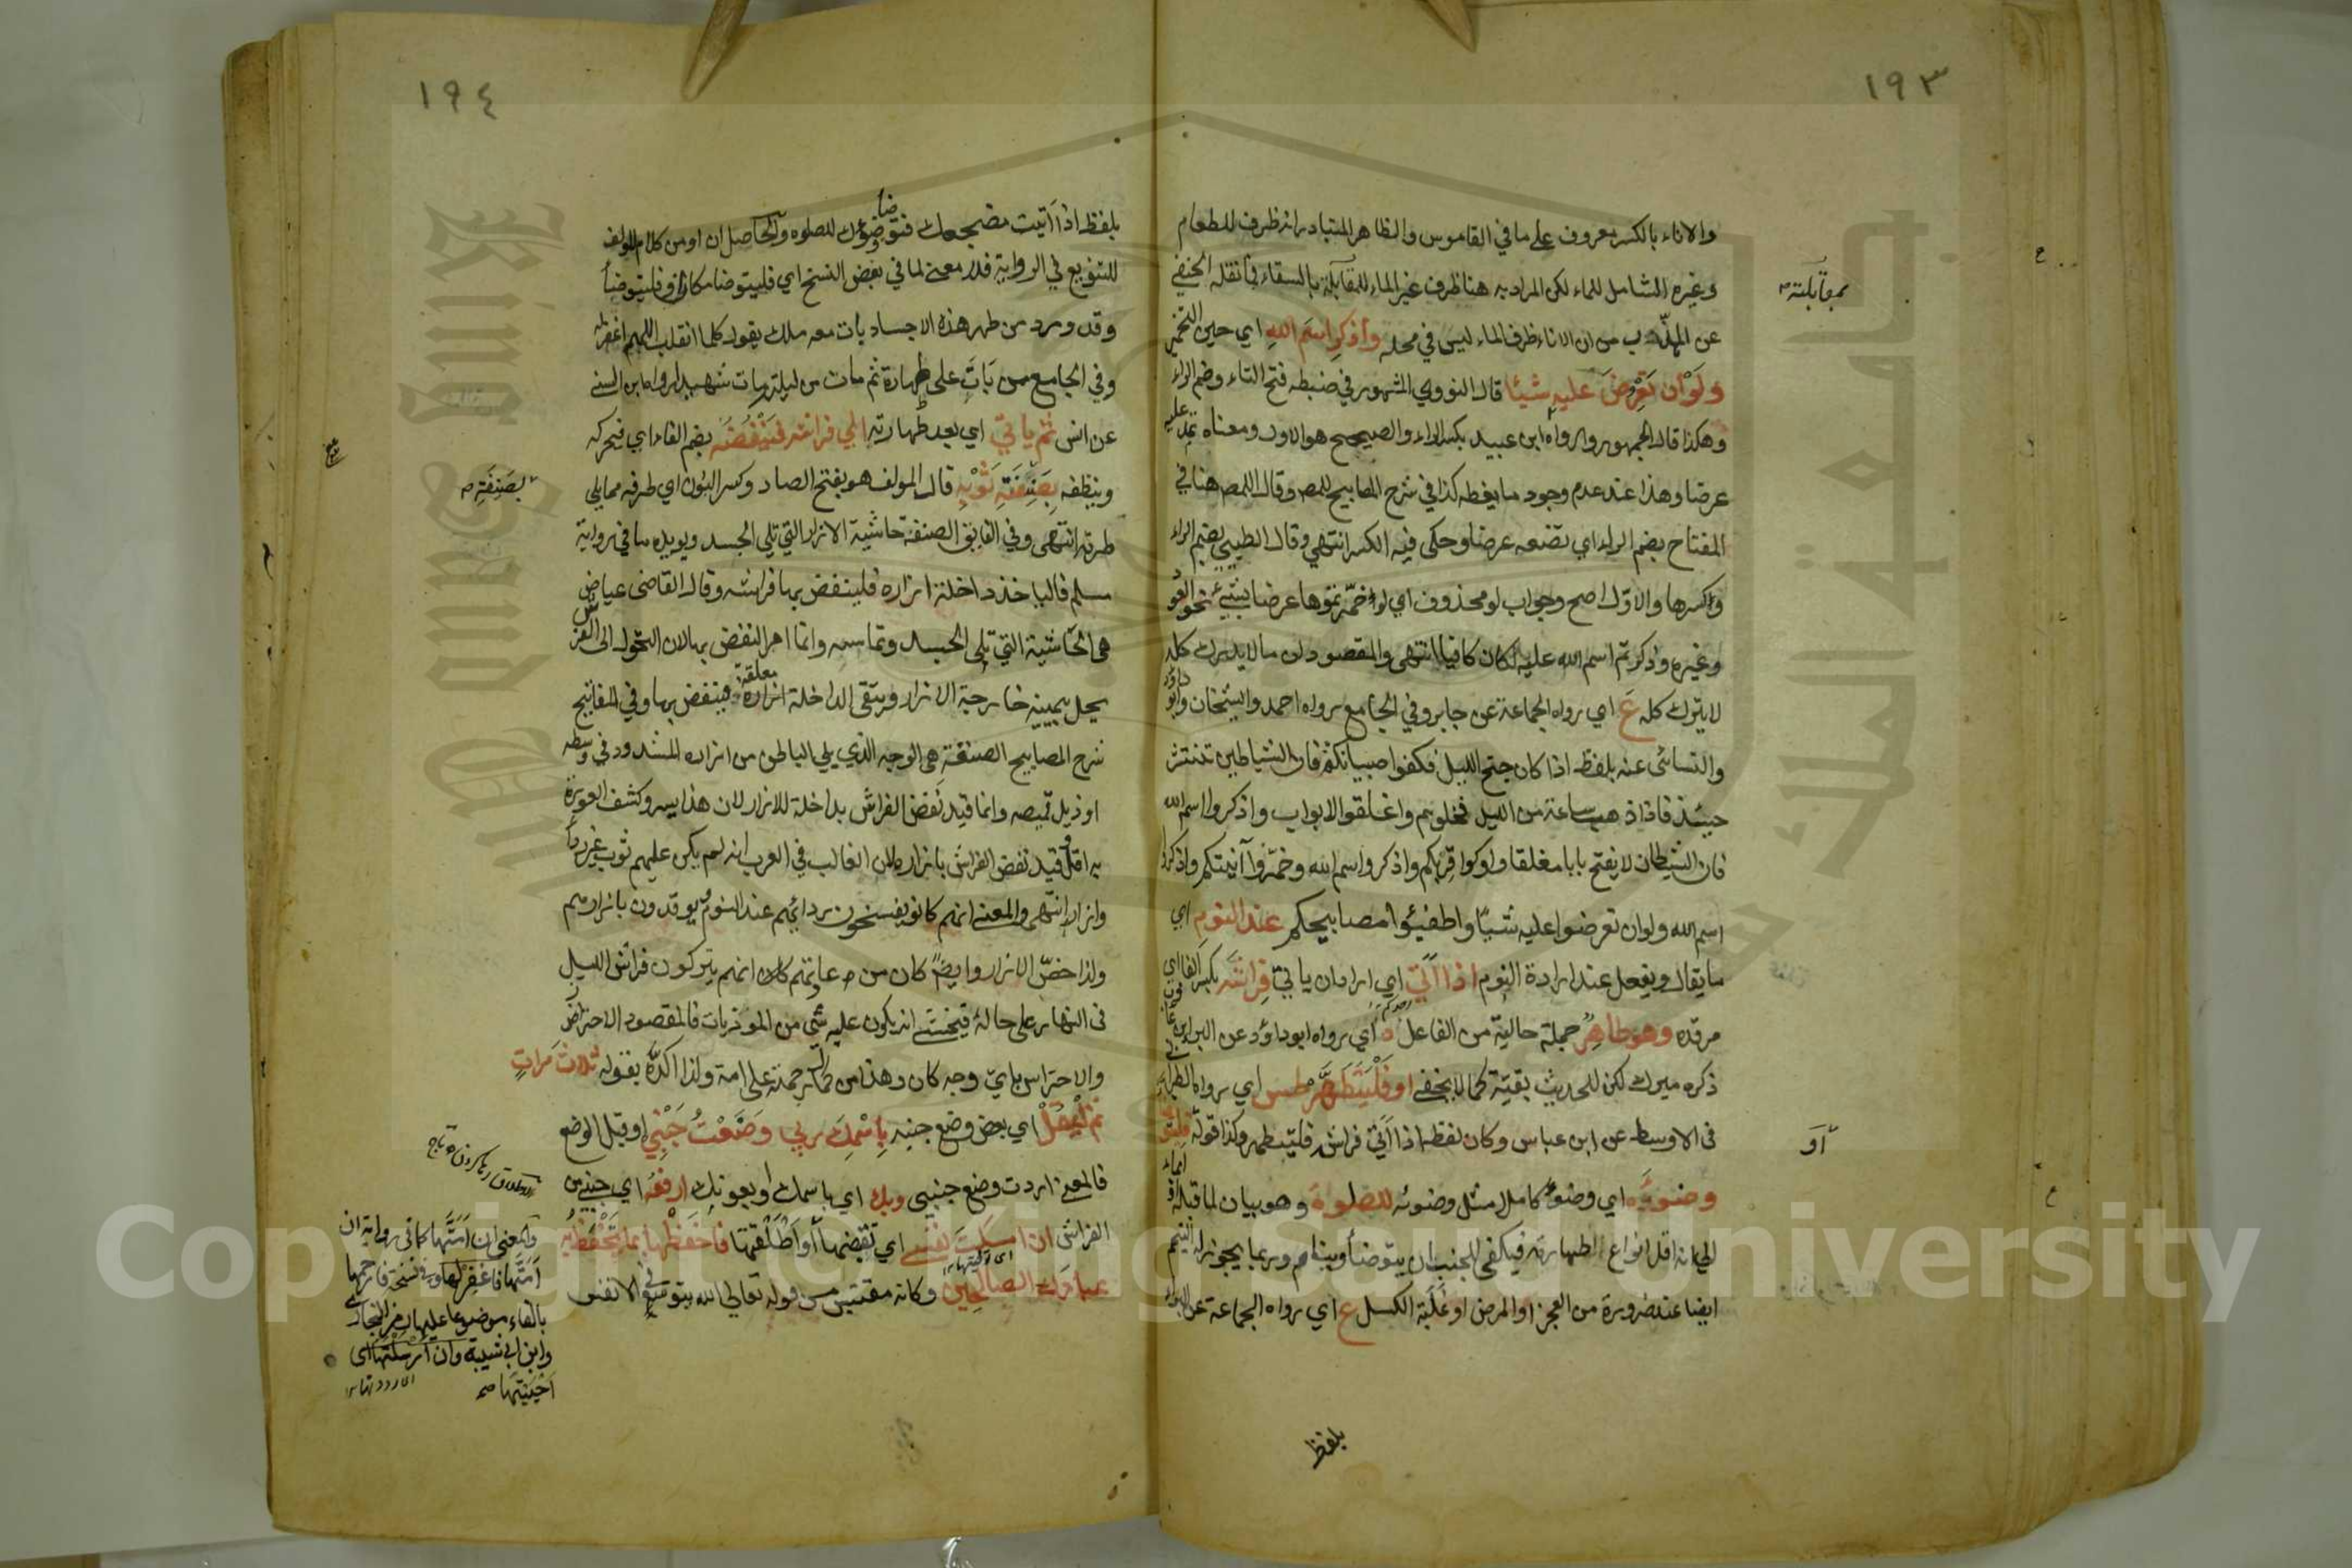 ١٩٣
والاناء بالكسر معروف على ما في القاموس والظاهر المتبادر انه ظرف للطعام
وغيره الشامل للماء لكن المراد به هنا ظرف غير الماء للمقابلة بالسقاء فما نقله الحنفي
بمقابلته
عن المهذب من ان الاناء ظرف الماء ليس في محله واذكر اسم الله اي حين التخمير
ولو ان تعرض عليه شيئا قال النووي المشهور في ضبطه فتح التاء وضم الراء
وهكذا قال الجمهور ورواه ابن عبيد بكسر الراء والصحيح هو الاول ومعناه تمد عليه
عرضا وهذا عند عدم وجود ما يغطه كذا في شرح المصابيح للمص وقال المص هنا في
المفتاح بضم الراء اي تضعه عرضا وحكى فيه الكسر انتهى وقال الطيبي بضم الراء
وكسرها والاول اصح وجواب لو محذوف اي لو خمرتموها عرضا بشيئ نحو العود
وغيره وذكرتم اسم الله عليه لكان كافيا انتهى والمقصود ان ما لا يدرك كله
لا يترك كله ع اي رواه الجماعة عن جابر وفي الجامع رواه احمد والشيخان وابو داود
والنسائى عنه بلفظ اذا كان جنح الليل فكفوا صبيانكم فان الشياطين تنتشر
حينئذ فاذا ذهب ساعة من الليل فخلوهم واغلقوا الابواب واذكروا اسم الله
فان الشيطان لا يفتح بابا مغلقا واوكوا قربكم واذكروا اسم الله وخمروا آنيتكم واذكروا
اسم الله ولو ان تعرضوا عليه شيئا واطفيئوا مصابيحكم عند النوم اي
ما يقال ويفعل عند ارادة النوم اذا اتى اي اراد ان ياتي فراشه بكسر الفا اي
مرقده وهو طاهر جملة حالية من الفاعل د اي رواه ابو داود عن البراء بن عازب
ذكره ميرك لكن للحديث بقية كما لا يخفى او فليتطهر طس اي رواه الطبراني
فى الاوسط عن ابن عباس وكان لفظه اذا اتى فراشه فليتطهر وكذا قوله
او
وضوءه اي وضوء كاملا مثل وضوئه للصلوة وهو بيان لما قبله
الى انه اقل انواع الطهارة فيكفى للجنب ان يتوضأ وينام وربما يجوز له التيمم
ايضا عند ضرورة من العجز او المرض او غلبة الكسل ع اي رواه الجماعة عن البراء
بلفظ
١٩٤
بلفظ اذا اتيت مضجعك فتوضأ وضوءك للصلوه والحاصل ان او من كلام المولف
للتنويع في الرواية فلا معنى لما في بعض النسخ اي فليتوضا مكان او فليتوضأ
وقد ورد من طهر هذه الاجساد بات معه ملك يقول كلما انقلب اللهم اغفر له
وفي الجامع من بات على طهارة ثم مات من ليلته مات شهيدا رواه ابن السنى
عن انس ثم ياتي اي بعد طهارته الى فراشه فينفضه بضم الفاء اي فيحركه
وينظفه بصنفة ثوبه قال المولف هو بفتح الصاد وكسر النون اي طرفه مما يلي
بصنفة
طرته انتهى وفي الفايق الصنفة حاشية الازار التي تلى الجسد ويويده ما في رواية
مسلم فالياخذ داخلة ازاره فلينفض بها فراشه وقال القاضى عياض
هى الحاشية التي تلى الجسد وتماسه وانما امر النفض بها لان المتحول الى الفراش
يحل بيمينه خارجة الازار ويبقى الداخلة معلقة فينفض بها وفي المفاتيح
شرح المصابيح الصنفة هى الوجه الذي يلي الباطن من ازاره المشدود في وسطه
او ذيل قميصه وانما قيد نفض الفراش بداخلة للازار لان هذا يسر وكشف العورة
به اقل وقيد نفض الفراش بازاره لان الغالب في العرب انه لم يكن عليهم ثوب غير رداء
وازار انتهى والمعنى انهم كانوا يفسخون ردائهم عند النوم ويرقدون بازارهم
ولذا خص الازار وايضا كان من عادتهم انهم يتركون فراش الليل
فى النهار على حاله فيخشى ان يكون عليه شى من الموذيات فالمقصود الاحتراز
والاحتراس باي وجه كان وهذا من كمال رحمته على امة ولذا اكده بقوله ثلاث مرات
ثم ليقل اي بعض وضع جنبه باسمك ربي وضعت جنبي او قبل الوضع
فالمعنى اردت وضع جنبى وبك اي باسمك او بعونك ارفعه اي جنبي من
الفراش ان امسكت نفسى اي تقبضها او اطلقتها فاحفظها بما تحفظ به
عبادك الصالحين وكانه مقتبس من قوله تعالى الله يتوفى الانفس
والمعنى ان امتها كما في رواية ان
امتها فاغفر لها وفي نسخة فارحمها
بالفاء موضوعا عليها رمز البخاري
وابن ابي شيبة وان ارسلتها اى
احييتها صح